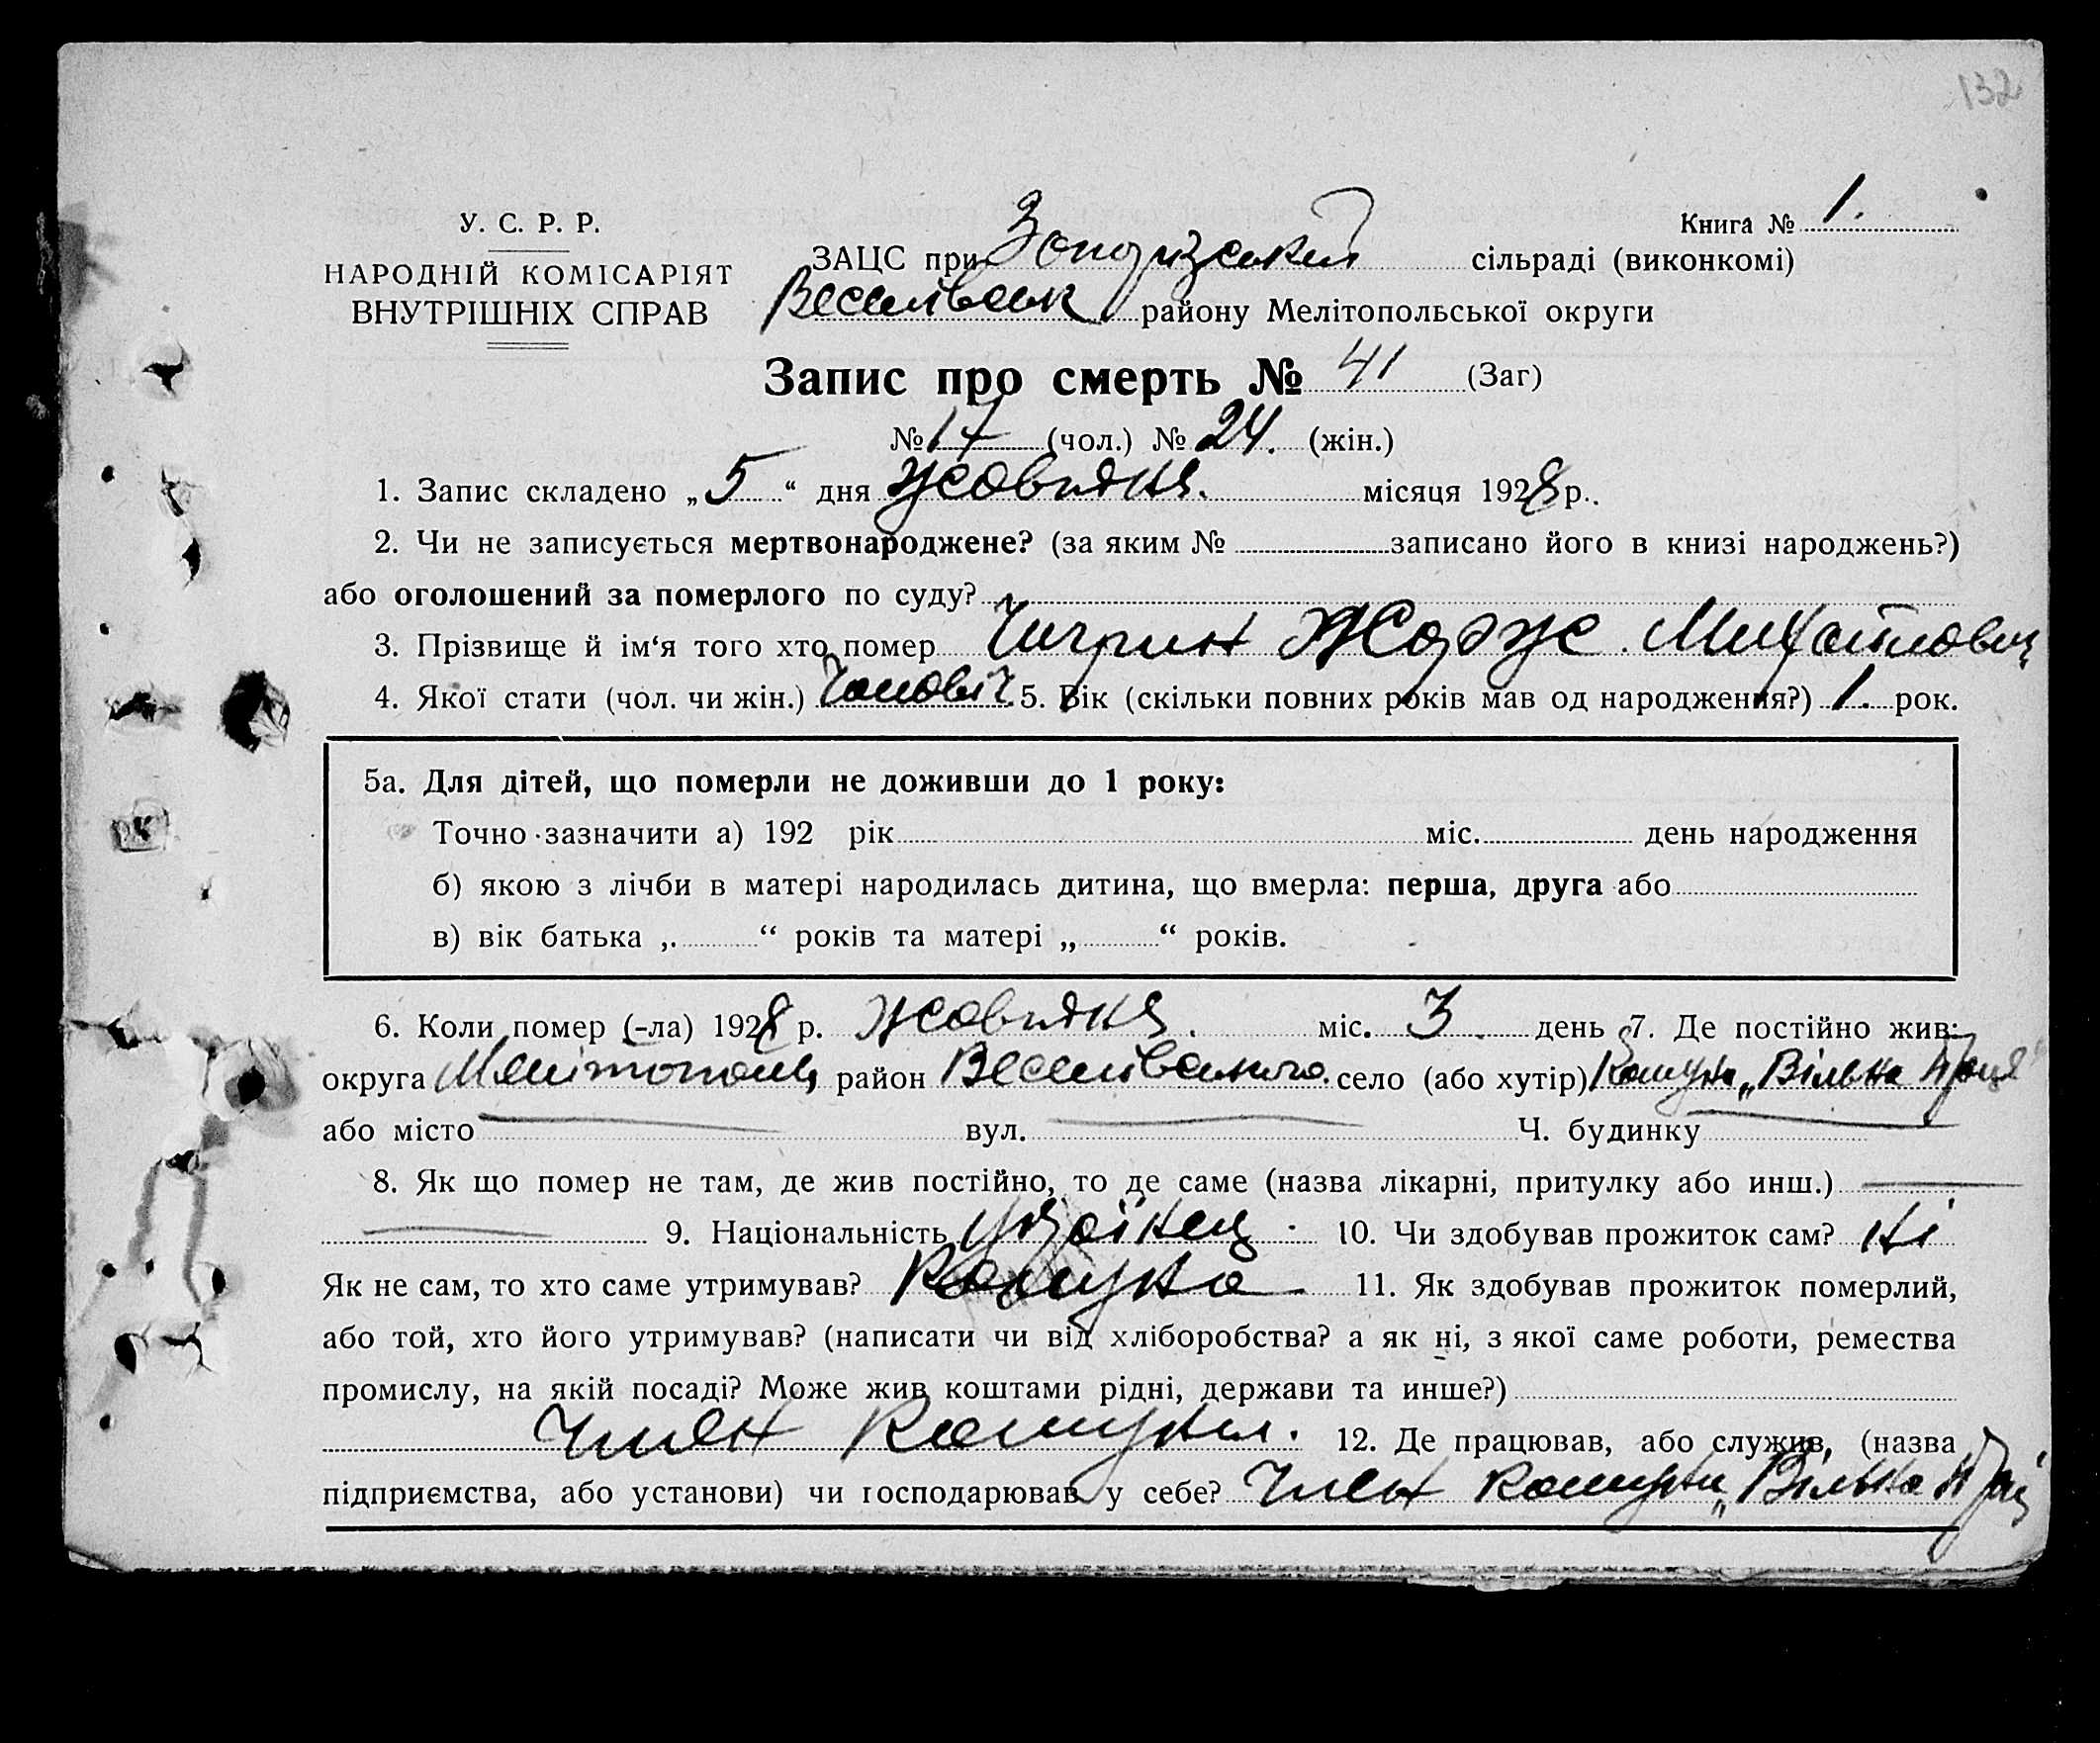 132
Книга № 1.
У. С. Р. Р.
НАРОДНІЙ КОМІСАРІЯТ
ВНУТРІШНІХ СПРАВ
ЗАЦС при сільраді (виконкомі)
району Мелітопольської округи
Запис про смерть № 41 (Заг)
№ 17 (чол.) № 24. (жін.)
1. Запис складено „ 5 “ дня Жовтня. місяця 1928 р..
2. Чи не записується мертвонароджене? (за яким № записано його в книзі народжень?)
або оголошений за померлого по суду?
3. Прізвище й ім‘я того хто помер Чигрин Жорж. Михайлович
4. Якої стати (чол. чи жін.) Чоловіч. 5. Вік (скільки повних років мав од народження?) 1. рок.
5а. Для дітей, що померли не доживши до 1 року:
Точно зазначити а) 192 рік міс. день народження
б) якою з лічби в матері народилась дитина, що вмерла: перша, друга або
в) вік батька „ “ років та матері „ “ років.
6. Коли помер (-ла) 1928 р. Жовтня. міс. 3. день 7. Де постійно жив:
округа район Веселівського. село (або хутір) Комуна „Вільна Праця“
або місто вул. Ч. будинку
8. Як що помер не там, де жив постійно, то де саме (назва лікарні, притулку або инш.)
9. Національність Українец 10. Чи здобував прожиток сам? Ні
Як не сам, то хто саме утримував? Комуна 11. Як здобував прожиток померлий,
або той, хто його утримував? (написати чи від хліборобства? а як ні, з якої саме роботи, ремества
промислу, на якій посаді? Може жив коштами рідні, держави та инше?)
Член Комуни. 12. Де працював, або служив, (назва
підприємства, або установи) чи господарював у себе? Член Комуни „Вільна Прац